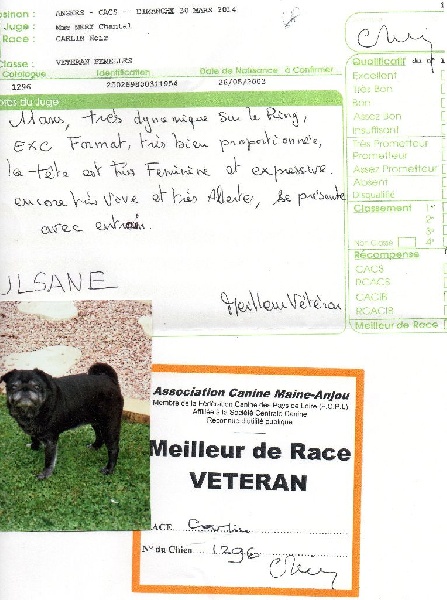 ANGERS - CACS - DIMANCHE 30 MARS 2014
1
Juge : Mme MERY Chantal
Race : CARLIN Noir
Classe : VETERAN FEMELLES
Catalogue Identification Date de Naissance à Confirmer
1296 26/05/2003
du Juge
11ans, très dynamique sur le Ring,
Exc Format, très bien proportionnée,
la tête est très Féminine et expressive.
encore très vive et très Alerte, Se présente
avec entrain.
Meilleur Vétéran
ULSANE
Qualificatif du n° 1
Excellent
Très Bon
Bon
Assez Bon
Insuffisant
Très Prometteur
Prometteur
Assez Prometteur
Absent
Disqualifié
Classement 1°
2°
3°
Non Classé 4°
Récompense
CACS
RCACS
CACIB
RCACIB
Meilleur de Race
Association Canine Maine-Anjou
Membre de la Fédération Canine des Pays de Loire (F.C.P.L)
Affiliée à la Société Centrale Canine
Reconnue d'utilité publique
Meilleur de Race
VETERAN
RACE Carlin
N° du Chien 1296